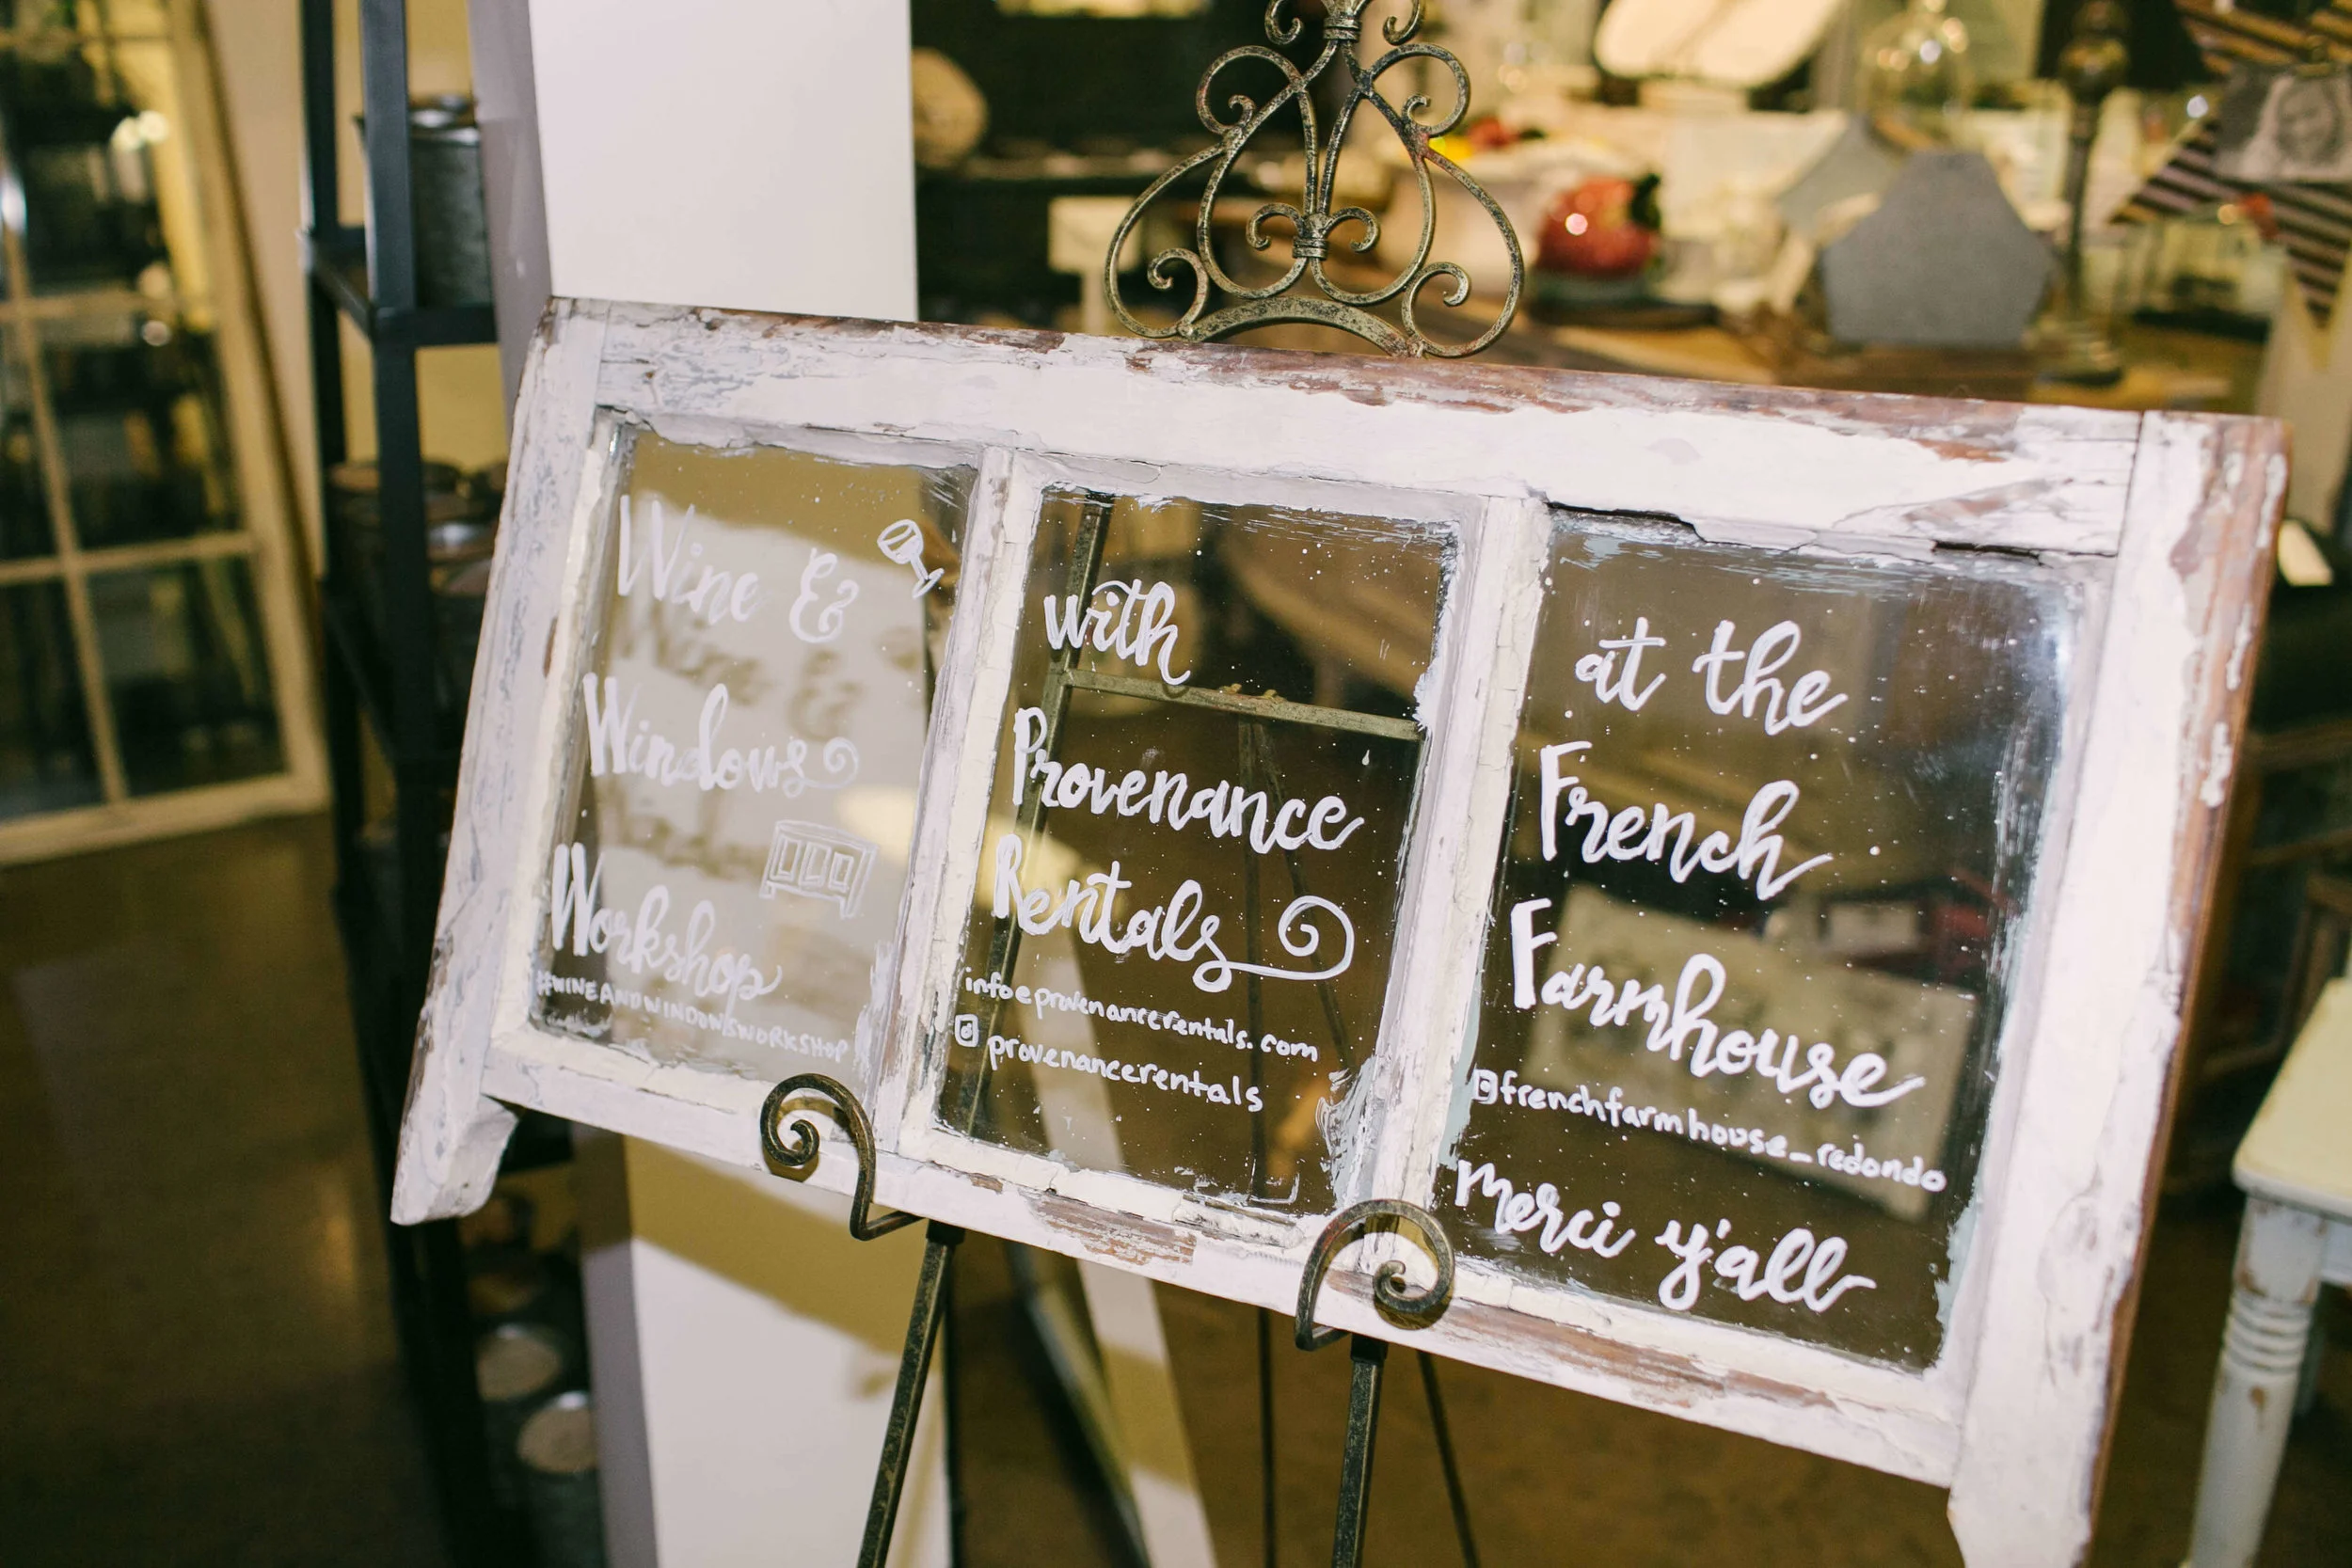 Wine &
Windows
Workshop
#WINEANDWINDOWSWORKSHOP
with
Provenance
Rentals
info@provenancerentals.com
provenancerentals
at the
French
Farmhouse
frenchfarmhouse_redondo
merci y'all